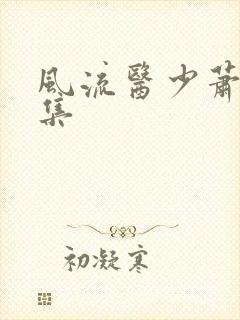 風流醫少蕭
集
初凝寒